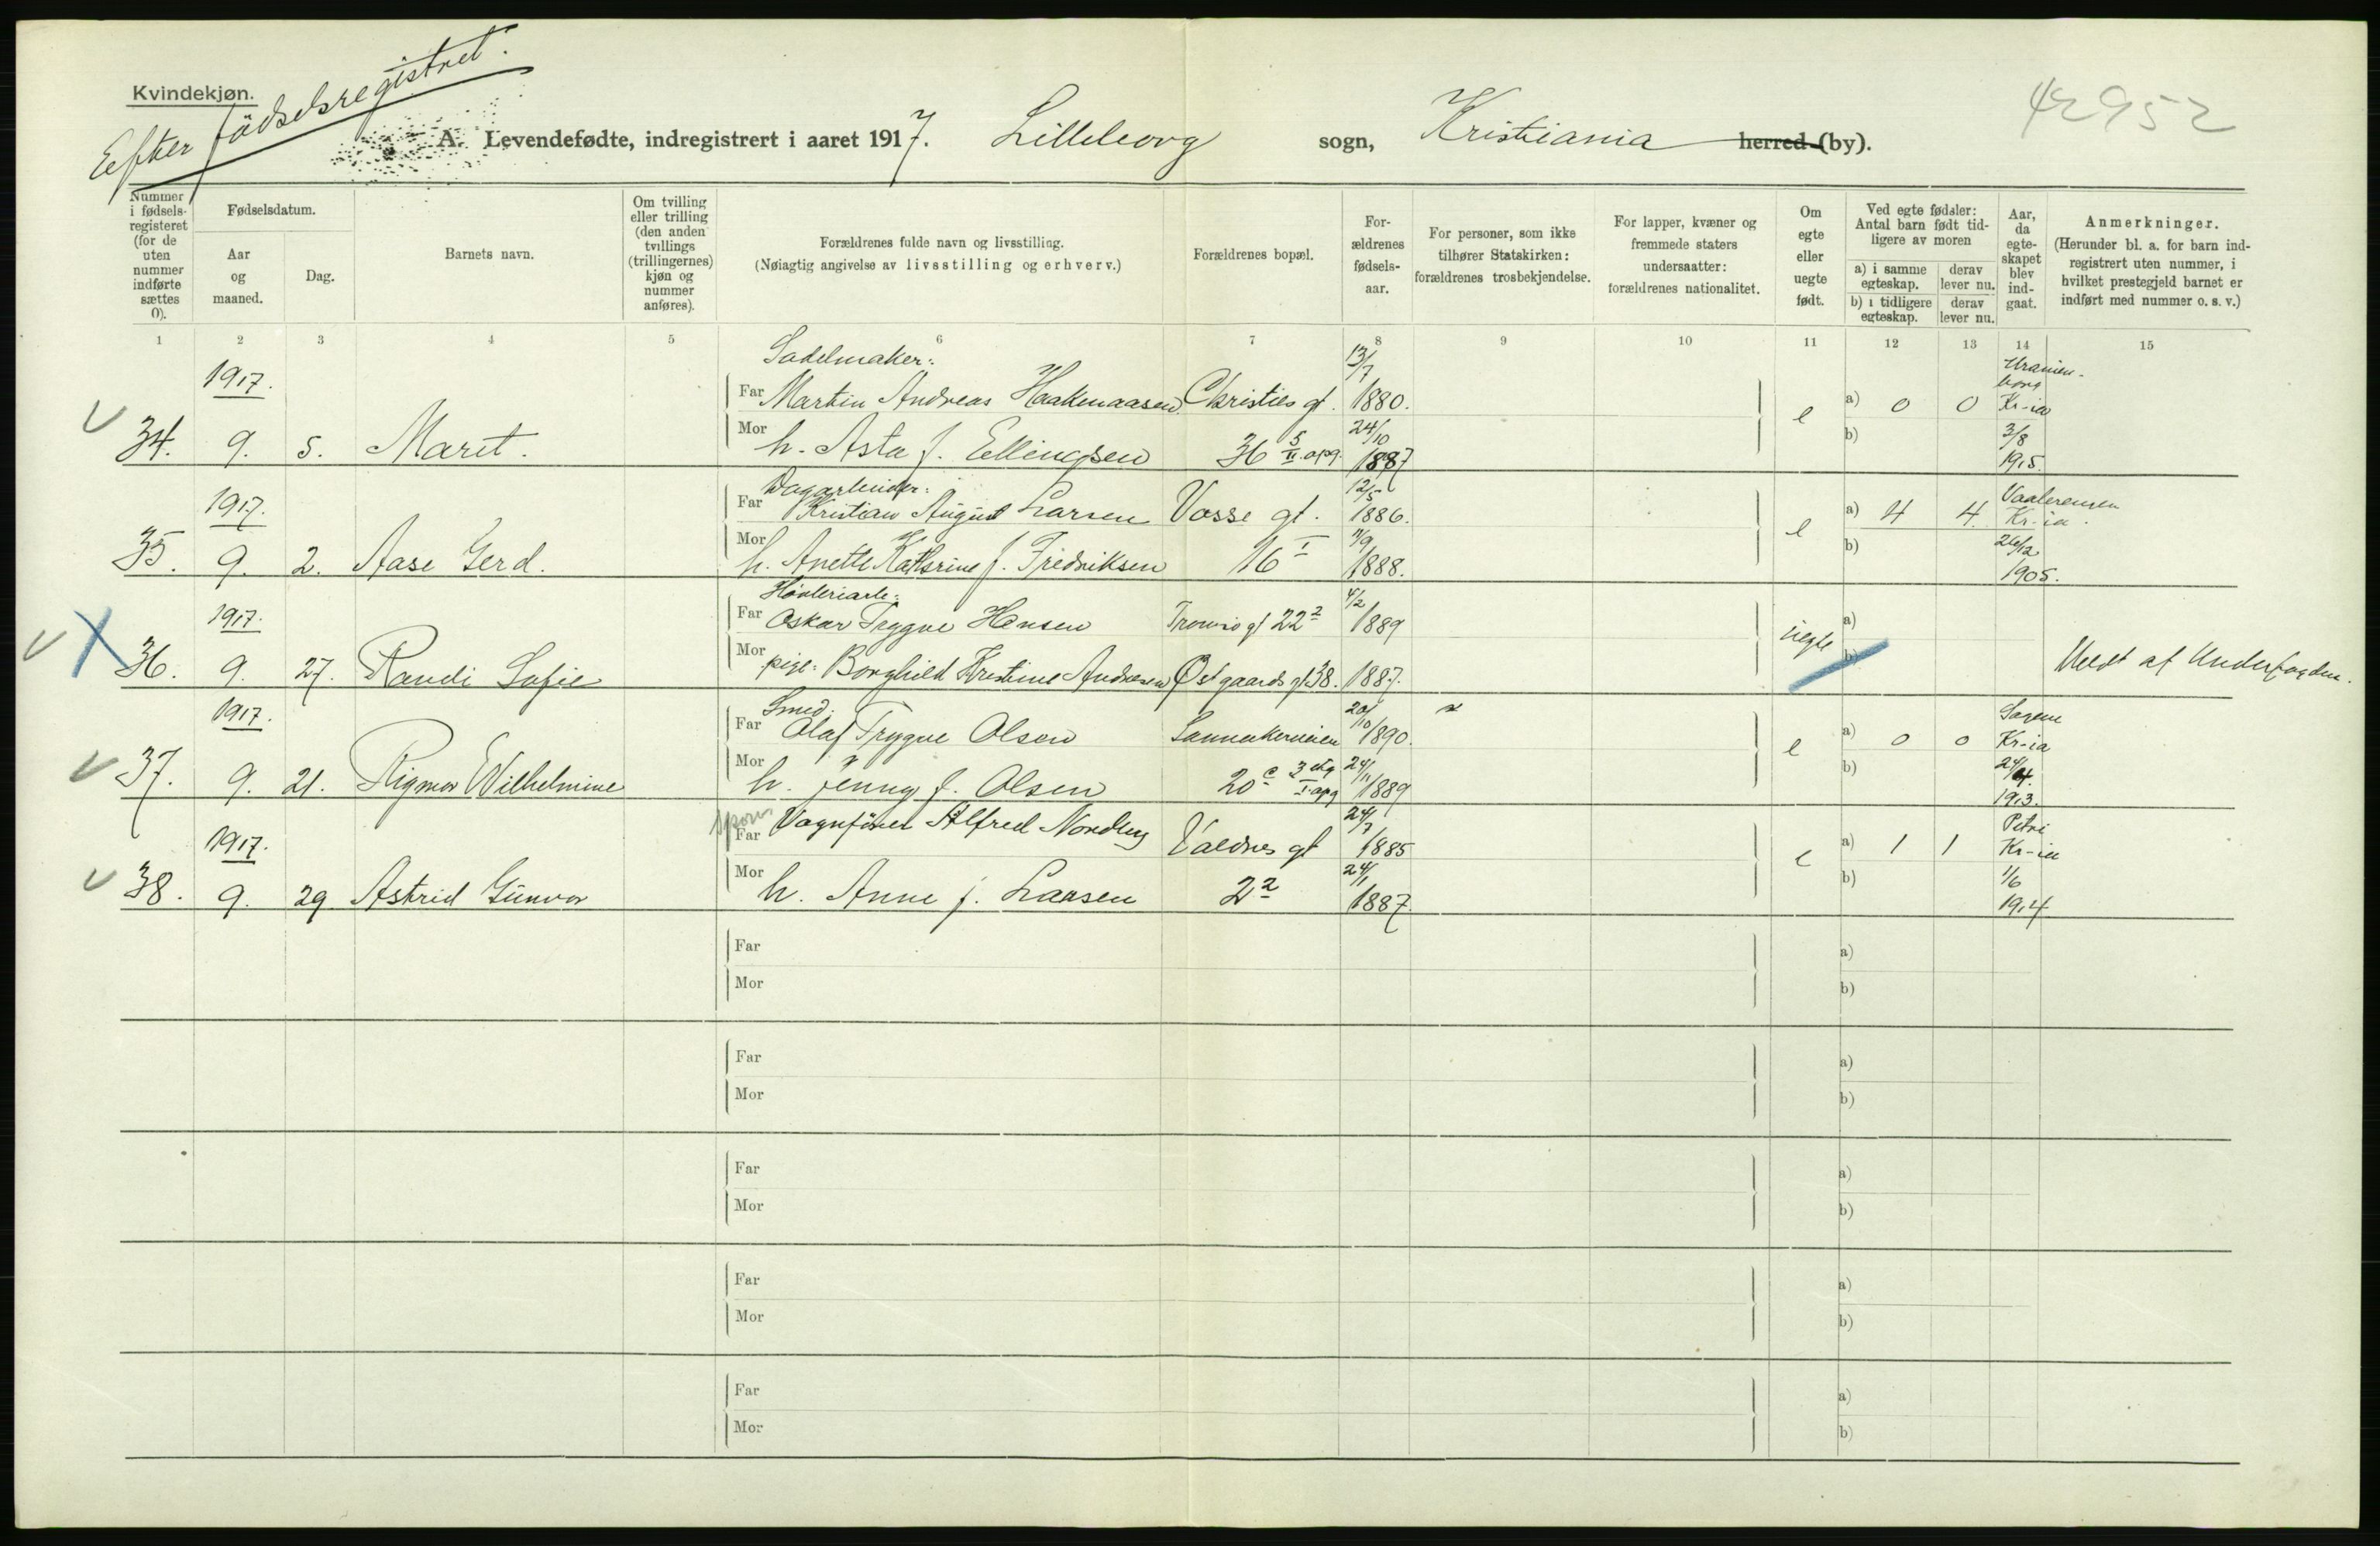 Efter fødselsregistret.
Kvindekjøn.
42952
A. Levendefødte, indregistrert i aaret 1917. Lilleborg sogn, Kristiania herred (by).
Nummer i fødsels-registeret (for de uten nummer indførte sættes 0).
Fødselsdatum.
Aar og maaned.
Dag.
Barnets navn.
Om tvilling eller trilling (den anden tvillings (trillingernes) kjøn og nummer anføres).
Forældrenes fulde navn og livsstilling.
(Nøiagtig angivelse av livsstilling og erhverv.)
Forældrenes bopæl.
For-ældrenes fødsels-aar.
For personer, som ikke tilhører Statskirken: forældrenes trosbekjendelse.
For lapper, kvæner og fremmede staters undersaatter: forældrenes nationalitet.
Om egte eller uegte født.
Ved egte fødsler: Antal barn født tid-ligere av moren
a) i samme egteskap.
derav lever nu.
b) i tidligere egteskap.
derav lever nu.
Aar, da egte-skapet blev ind-gaat.
Anmerkninger.
(Herunder bl. a. for barn ind-registrert uten nummer, i hvilket prestegjeld barnet er indført med nummer o. s. v.)
1 2 3 4 5 6 7 8 9 10 11 12 13 14 15
Sadelmaker: 13/7 Uranien-
1917. borg
Far Martin Andreas Haakenaasen Christies gt. 1880. a) 0 0 Kr-ia
e
Mor 24/10 b) 3/8
34. 9. 5. Maret. h. Asta f. Ellingsen 36 5 II. opg. 1887 1915.
Dagarbeider: 12/5 Vaalerengen
1917. Far Kristian August Larsen Vosse gt. 1886. a) 4 4 Kr-ia.
e
Mor 11/9 b) 26/12
35. 9. 2. Aase Gerd. h. Anette Kathrine f. Fredriksen 16 I 1888. 1905.
Høvleriarb: 4/2
1917. Far Oskar Trygve Hansen Tromsø gt 22 2 1889 a)
uegte
Mor b)
36. 9. 27. Randi Sofie pige: Borghild Kristine Andresen Østgaards gt 38. 1887. Meldt af Underfogden.
Smed. 20/10 Sagene
1917. Far Olaf Trygve Olsen Sannerkerveien 1890. a) 0 0 Kr-ia
e
Mor 24/11 b)
37. 9. 21. Rigmor Wilhelmine h. Jenny f. Olsen 20 c 3 etg I opg 1889 1913.
24/7 Petri
1917. Far Vognfører Alfred Nordby Valdres gt 1885 a) 1 1 Kr-ia
e
Mor 24/1 b) 1/6
38. 9. 29 Astrid Gunvor h. Anne f. Larsen 2 2 1887. 1914
Far a)
Mor b)
Far a)
Mor b)
Far a)
Mor b)
Far a)
Mor b)
Far a)
Mor b)